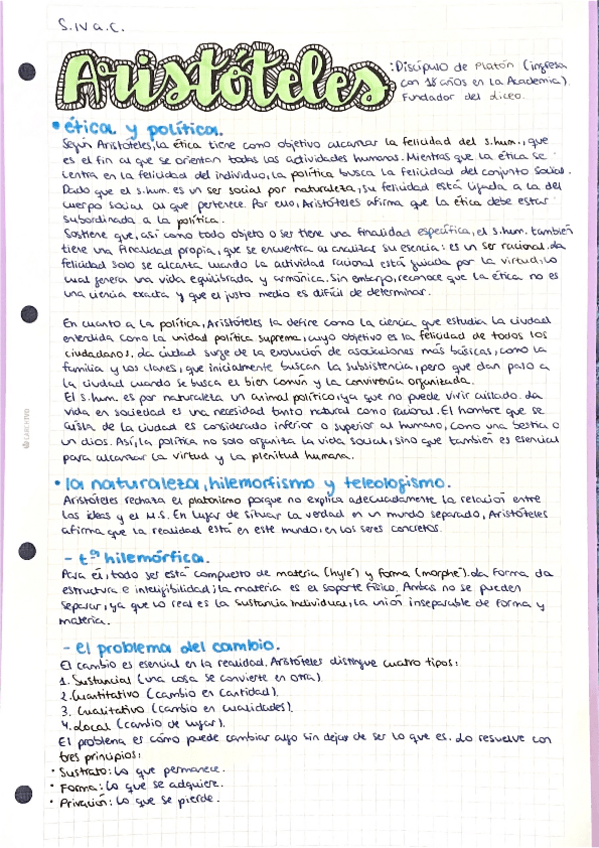 S.IV a.C.
Aristóteles
: Discípulo de Platón (ingresa
con 18 años en la Academia).
Fundador del Liceo.
• ética y política.
Según Aristóteles, la ética tiene como objetivo alcanzar la felicidad del s.hum., que
es el fin al que se orientan todas las actividades humanas. Mientras que la ética se
centra en la felicidad del individuo, la política busca la felicidad del conjunto social.
Dado que el s.hum. es un ser social por naturaleza, su felicidad está ligada a la del
cuerpo social al que pertenece. Por ello, Aristóteles afirma que la ética debe estar
subordinada a la política.
Sostiene que, así como todo objeto o ser tiene una finalidad específica, el s.hum. también
tiene una finalidad propia, que se encuentra al analizar su esencia: es un ser racional. La
felicidad solo se alcanza cuando la actividad racional está guiada por la virtud, lo
cual genera una vida equilibrada y armónica. Sin embargo, reconoce que la ética no es
una ciencia exacta y que el justo medio es difícil de determinar.
En cuanto a la política, Aristóteles la define como la ciencia que estudia la ciudad
entendida como la unidad política suprema, cuyo objetivo es la felicidad de todos los
ciudadanos. La ciudad surge de la evolución de asociaciones más básicas, como la
familia y los clanes, que inicialmente buscan la subsistencia, pero que dan paso a
la ciudad cuando se busca el bien común y la convivencia organizada.
El s.hum. es por naturaleza un animal político, ya que no puede vivir aislado. La
vida en sociedad es una necesidad tanto natural como racional. El hombre que se
aísla de la ciudad es considerado inferior o superior al humano, como una bestia o
un dios. Así, la política no solo organiza la vida social, sino que también es esencial
para alcanzar la virtud y la plenitud humana.
CARCHIVO
• la naturaleza, hilemorfismo y teleologismo.
Aristóteles rechaza el platonismo porque no explica adecuadamente la relación entre
las ideas y el M.S. En lugar de situar la verdad en un mundo separado, Aristóteles
afirma que la realidad está en este mundo, en los seres concretos.
- tª hilemórfica.
Para él, todo ser está compuesto de materia (hylé) y forma (morphé). La forma da
estructura e inteligibilidad; la materia es el soporte físico. Ambas no se pueden
separar, ya que lo real es la sustancia individual, la unión inseparable de forma y
materia.
- el problema del cambio.
El cambio es esencial en la realidad. Aristóteles distingue cuatro tipos:
1. Sustancial (una cosa se convierte en otra).
2. Cuantitativo (cambio en cantidad).
3. Cualitativo (cambio en cualidades).
4. Local (cambio de lugar).
El problema es cómo puede cambiar algo sin dejar de ser lo que es. Lo resuelve con
tres principios:
• Sustrato: lo que permanece.
• Forma: lo que se adquiere.
• Privación: lo que se pierde.